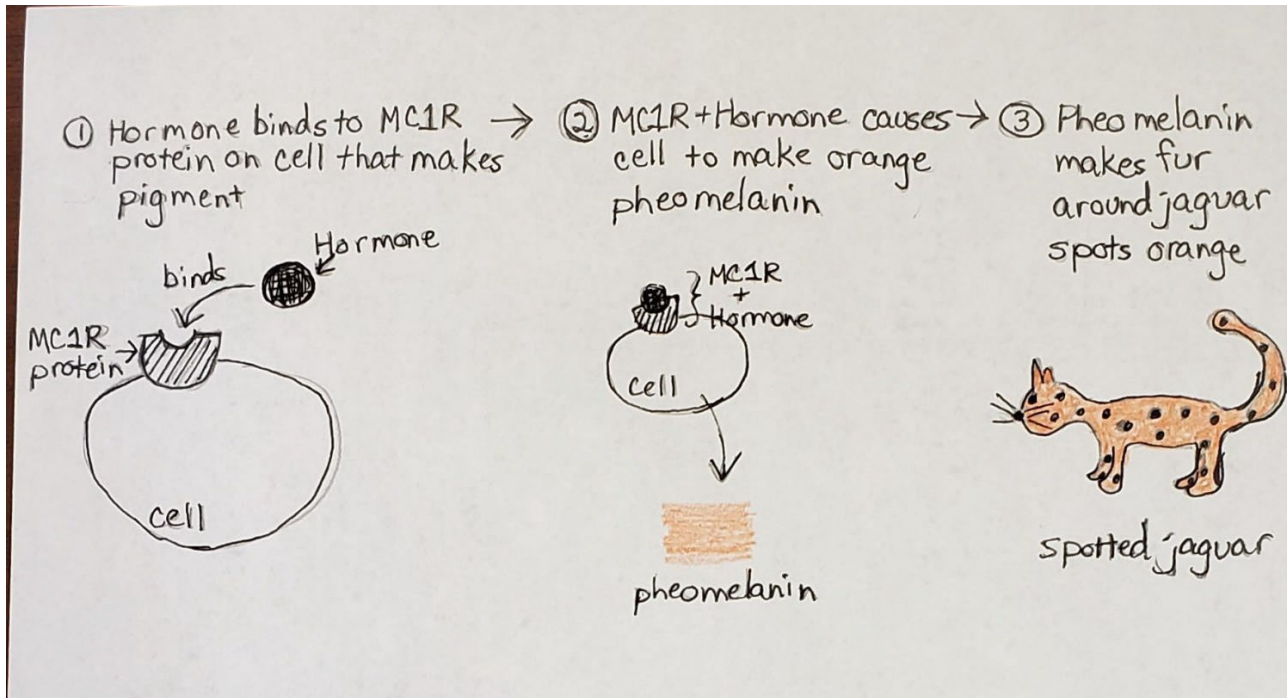 ① Hormone binds to MC1R →
protein on cell that makes
pigment
Hormone
binds
MC1R
protein
cell
② MC1R+Hormone causes →
cell to make orange
pheomelanin
MC1R
+
Hormone
cell
pheomelanin
③ Pheomelanin
makes fur
around jaguar
spots orange
spotted jaguar